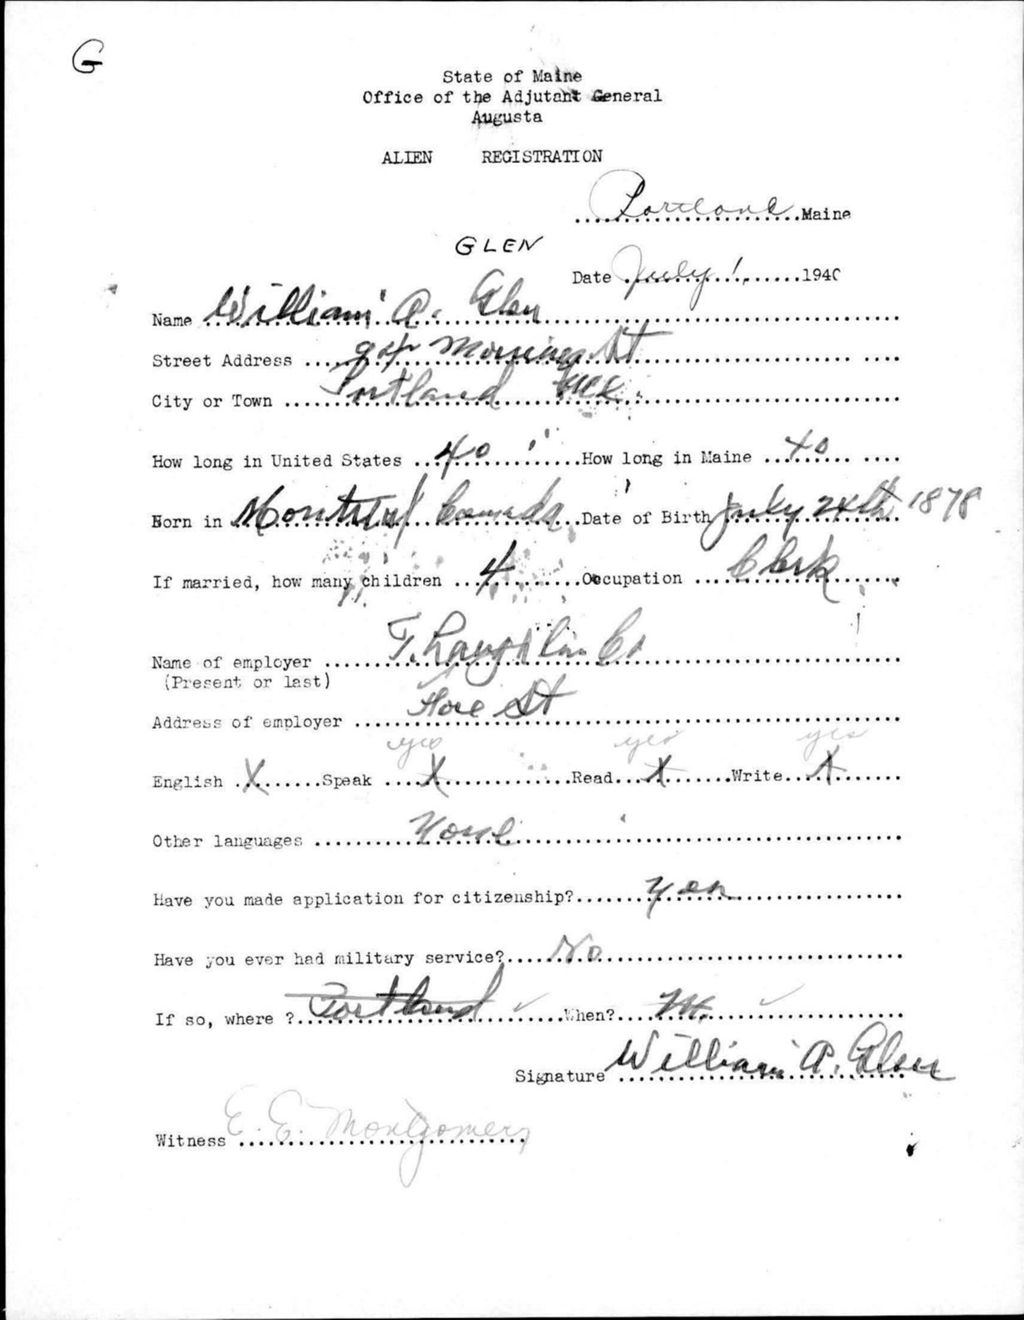 G
State of Maine
Office of the Adjutant General
Augusta
ALIEN REGISTRATION
Portland Maine
GLEN
Date July 1 1940
Name William A. Glen
Street Address St
City or Town Portland Me.
How long in United States 40 How long in Maine 40
Born in Montreal Canada Date of Birth July 24th 1878
If married, how many children 4 Occupation Clerk
Name of employer T. Laughlin Co
(Present or last)
Address of employer Fore St
yes yes yes
English X Speak X Read X Write X
Other languages None
Have you made application for citizenship? Yes
Have you ever had military service? No
If so, where ? Portland When?
Signature William A. Glen
Witness E. E. Montgomery